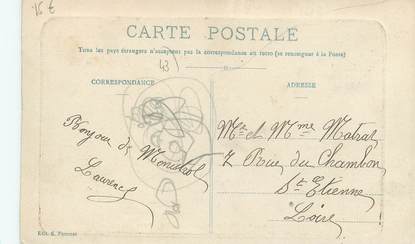 15 €
CARTE POSTALE
Tous les pays étrangers n'acceptent pas la correspondance au recto (se renseigner à la Poste)
43
CORRESPONDANCE
ADRESSE
Bonjour de Monistrol
Laurence
Mr et Mme Matrat
7 Rue du Chambon
St Etienne
Loire
Edit.